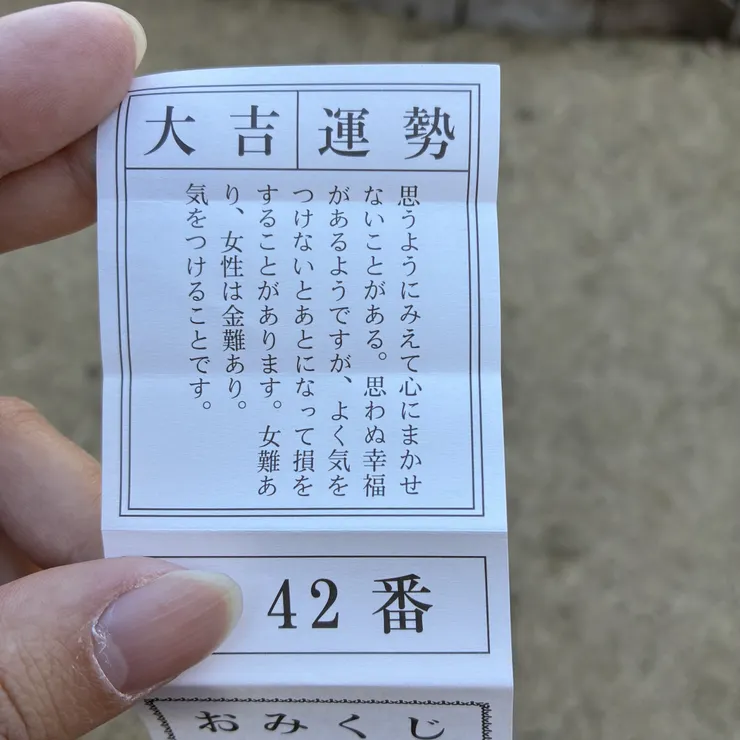 大吉 運勢
思うようにみえて心にまかせ
ないことがある。思わぬ幸福
があるようですが、よく気を
つけないとあとになって損を
することがあります。女難あ
り、女性は金難あり。
気をつけることです。
42番
おみくじ